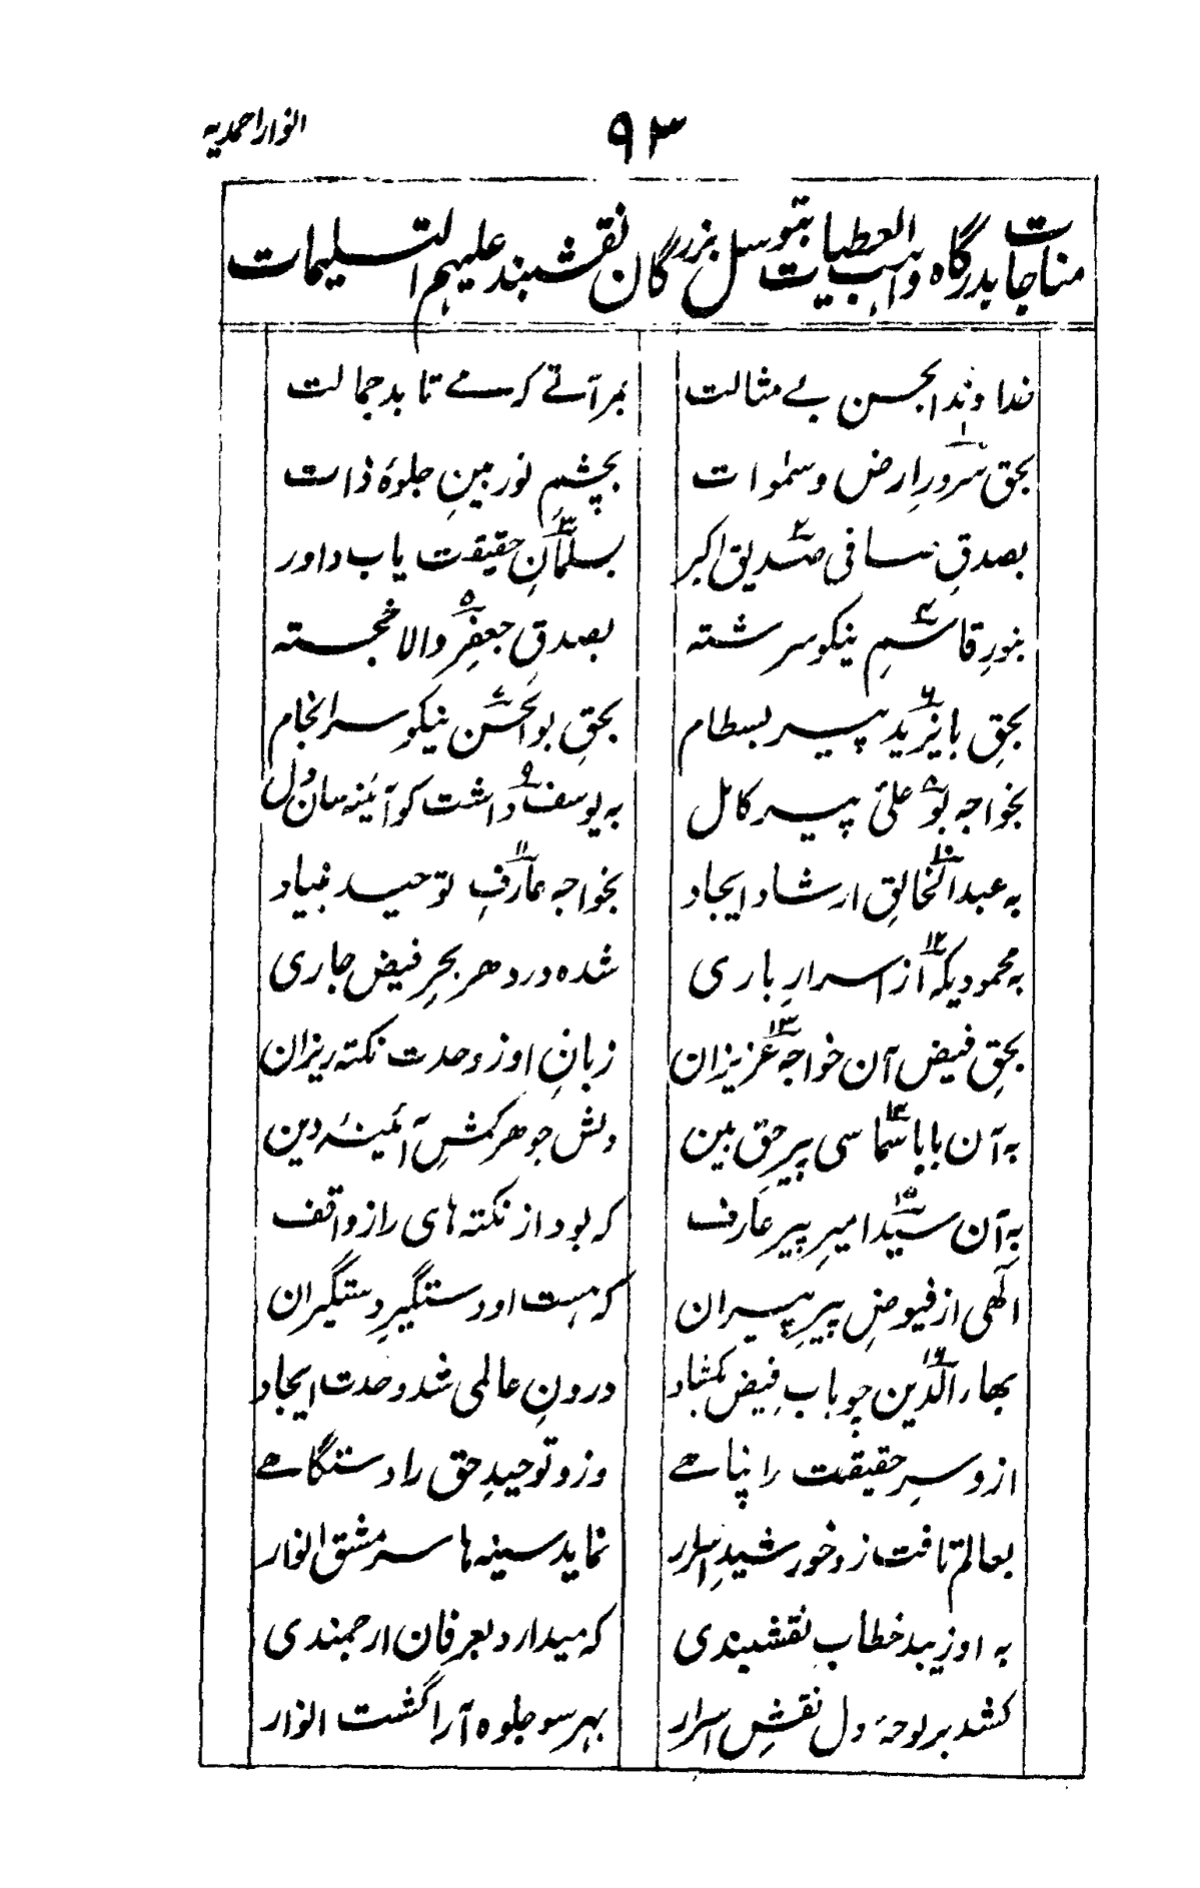 ۹۳ انوار احمدیہ
مناجات بدرگاہ واہب العطیات بتوسل بزرگان نقشبند علیہم التسلیمات
خداوندا بحسن بے مثالت بمرآتے کہ مے تابد جمالت
بحق سرورِ ارض و سمٰوات ۱ بچشمِ نور بینِ جلوۂ ذات
بصدقِ صافی صدیق اکبر ۲ بسلمانِ حقیقت یاب داور ۳
بنورِ قاسمِ نیکو سرشتہ ۴ بصدقِ جعفرِ والا خجستہ ۵
بحقِ بایزید پیر بسطام ۶ بحقِ بوالحسن نیکو سرانجام ۷
بخواجہ بو علی پیر کامل ۸ بہ یوسف داشت کو آئینہ سان دل ۹
بہ عبدالخالقِ ارشاد ایجاد ۱۰ بخواجہ عارفِ توحید بنیاد ۱۱
بہ محمودیکہ از اسرارِ باری ۱۲ شدہ در دھر بحرِ فیض جاری
بحقِ فیض آن خواجہ عزیزان ۱۳ زبانِ او ز وحدت نکتہ ریزان
بہ آن بابا سماسی پیرِ حق بین ۱۴ دلش جوھر کشِ آئینۂ دین
بہ آن سید امیرِ پیر عارف ۱۵ کہ بود از نکتہ ہای راز واقف
الٰہی از فیوضِ پیرِ پیران کہ ہست او دستگیرِ دستگیران
بھاء الدین چو بابِ فیض بکشاد ۱۶ درونِ عالمی شد وحدت ایجاد
ازو سرِ حقیقت را پناھے وزو توحیدِ حق را دستگاھے
بعالم تافت زو خورشیدِ اسرار نماید سینہ ہا سر مشقِ انوار
بہ او زیبد خطابِ نقشبندی کہ میدارد بعرفان ارجمندی
کشد بر لوحۂ دل نقشِ اسرار بہر سو جلوہ آرا گشت انوار